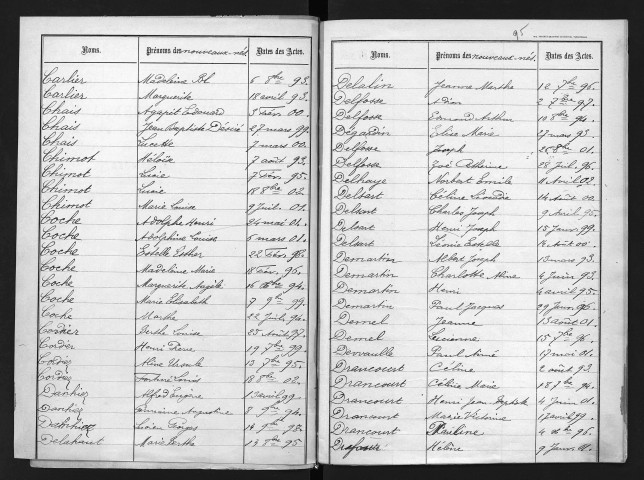 Noms. Prénoms des nouveaux-nés. Dates des Actes.
Carlier Madeleine Bl 6 8bre 93.
Carlier Marguerite 18 avril 93.
Chais Agapit Edouard 5 Fév. 00.
Chais Jean Baptiste Désiré 27 mars 99.
Chais Lucette 7 mars 00.
Chimot Héloïse 7 août 93.
Chimot Lucie 7 Fév. 95.
Chimot Lucie 18 8bre 02.
Chimot Marie Louise 9 Juil. 01.
Coche Adolphe Henri 24 mai 04.
Coche Adolphine Louise 6 mars 01.
Coche Estelle Esther 22 Fév. 98.
Coche Madeleine Marie 18 Fév. 96.
Coche Marguerite Angèle 16 94.
Coche Marie Elisabeth 7 99.
Coche Marthe 22 Juil. 94.
Cordier Berthe Louise 25 Août 97.
Cordier Henri Pierre 19 7bre 99.
Cordier Aline Ursule 13 7bre 95.
Cordier Louis 18 8bre 02.
Danhiez Alfred Eugène 13 avril 99.
Danhiez Augustine 8 94.
Danhiez Lucien Georges 14 98.
Delahout Marie Berthe 13 8bre 95
95
Noms. Prénoms des nouveaux-nés. Dates des Actes.
Delalin Jeanne Marthe 12 7bre 96.
Delfosse 2 97.
Delfosse Edmond Arthur 10 8bre 94.
Dégardin Elise Marie 27 mars 93.
Delfosse Joseph 28 8bre 01.
Delfosse Zoé 28 Juil. 96.
Delhaye Norbert Emile 11 Avril 02.
Delsart Céline Léocadie 14 Août 00.
Delsart Charles Joseph 9 Avril 95.
Delsart Henri Joseph 18 Janv. 99.
Delsart Léonie Estelle 14 Août 00.
Demartin Albert Joseph 13 mars 93.
Demartin Charlotte Aline 4 Juin 93.
Demartin Henri 4 avril 95.
Demartin Paul Jacques 29 Janv. 96.
Demel Jeanne 13 août 01.
Demel Lucienne 15 7bre 96.
Dervaulle Paul Aimé 17 mai 01.
Drancourt Céline 2 août 93.
Drancourt Célina Marie 18 7bre 94.
Drancourt Henri Jean Baptiste 4 Juin 01.
Drancourt Marie Victoria 1 avril 99.
Drancourt Pauline 4 96.
Hélène 9 Janv.